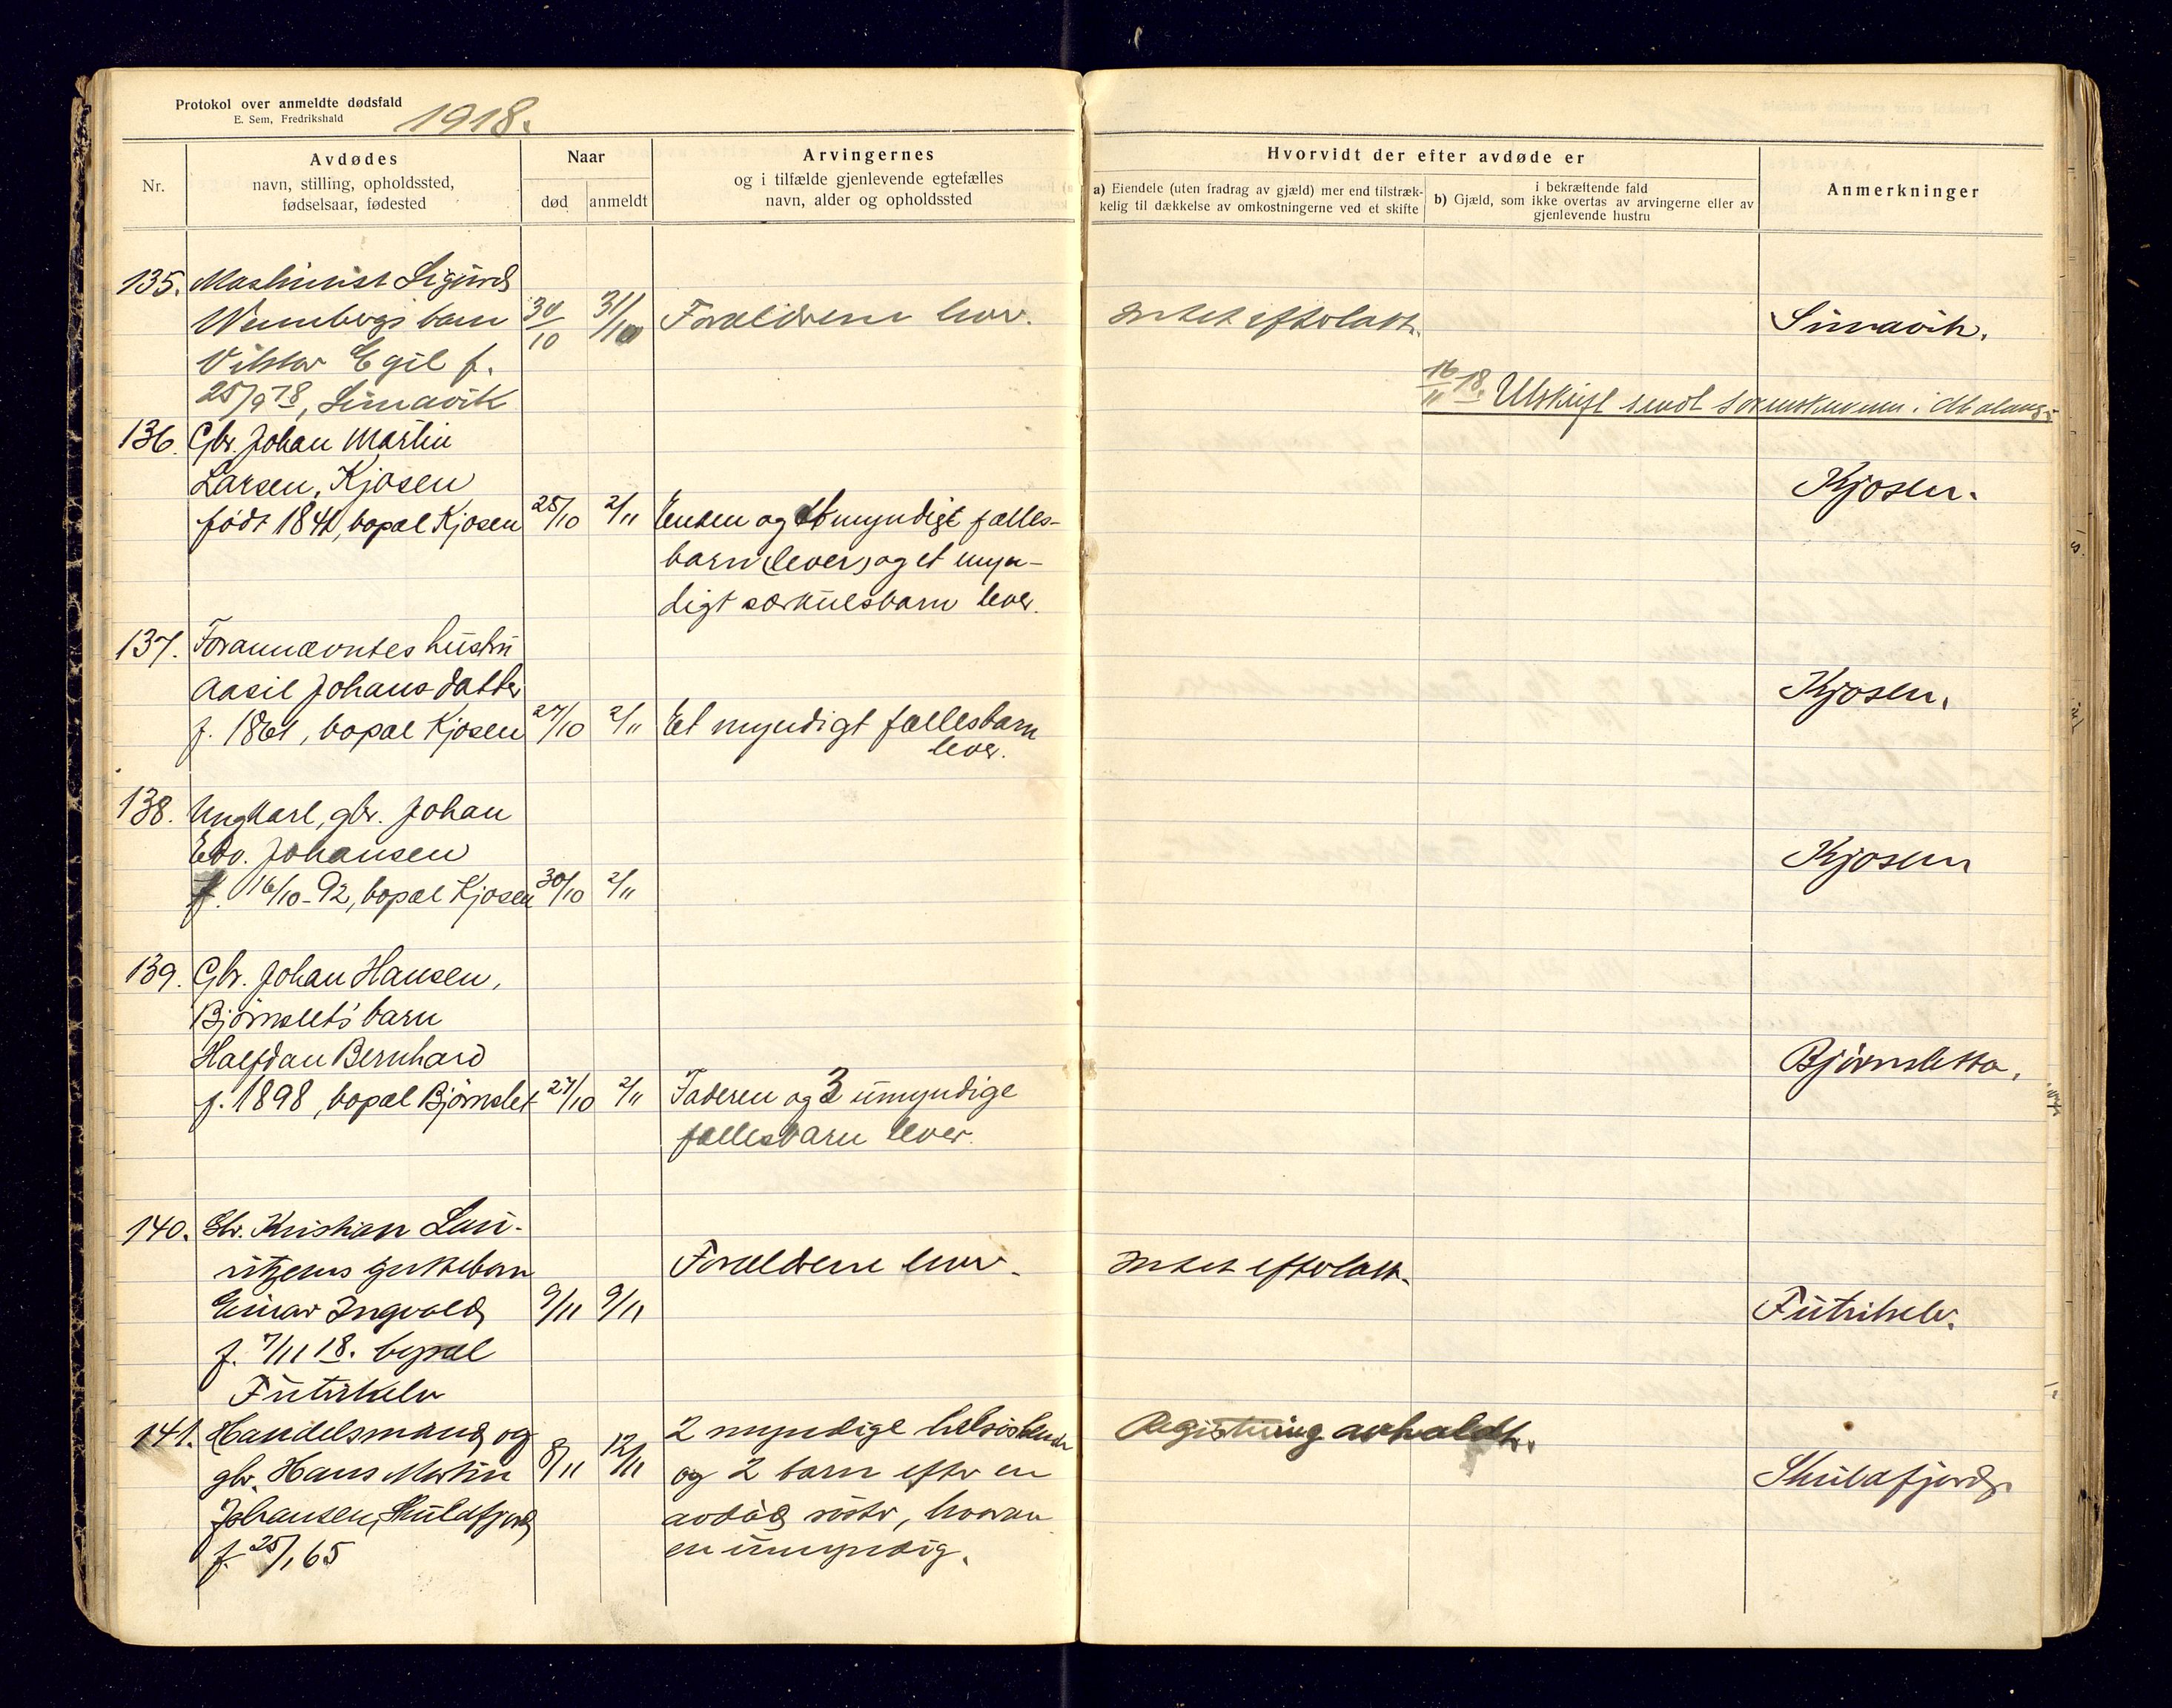 Protokol over anmeldte dødsfald
E. Sem, Fredrikshald
1918.
Nr.
Avdødes
navn, stilling, opholdssted,
fødselsaar, fødested
Naar
død
anmeldt
Arvingernes
og i tilfælde gjenlevende egtefælles
navn, alder og opholdssted
Hvorvidt der efter avdøde er
a) Eiendele (uten fradrag av gjæld) mer end tilstræk-
kelig til dækkelse av omkostningerne ved et skifte
i bekræftende fald
b) Gjæld, som ikke overtas av arvingerne eller av
gjenlevende hustru
Anmerkninger
135. Maskinist Sigurd
Wennbergs barn 30/10 31/10 Forældrene lever. Intet efterlatt. Simavik.
Viktor Egil f.
25/9 18, Simavik
16/11 18. Utskrift sendt sorenskriveren i Malangs
136. Gbr. Johan Martin
Larsen, Kjosen Kjosen.
født 1841, bopæl Kjosen 25/10 2/11 Enken og myndigt fælles-
barn (lever) og et myn-
digt særkulsbarn lever.
137. Forannævntes hustru
Aasil Johans datter Kjosen.
f. 1861, bopæl Kjosen 27/10 2/11 Et myndigt fællesbarn
lever.
138. Ungkarl, gbr. Johan
Edv. Johansen Kjosen
f. 16/10-92, bopæl Kjosen 30/10 2/11
139. Gbr. Johan Hansen,
Bjørnslet's barn
Halfdan Bernhard Bjørnsletta.
f. 1898, bopæl Bjørnslet 27/10 2/11 Faderen og 3 umyndige
fællesbarn lever.
140. Gbr. Kristian Lau-
ritzens guttebarn Forældrene lever. Intet efterlatt.
Einar Ingvald 9/11 9/11 Futrikelv.
f. 7/11 18. bopæl
Futrikelv
141. Handelsmand og 2 myndige helsøsken Registrering avholdt.
gbr. Hans Martin 8/11 12/11 og 2 barn efter en Skulsfjord.
Johansen, Skulsfjord avdød søster, hvorav
f. 25/1 65 en umyndig.